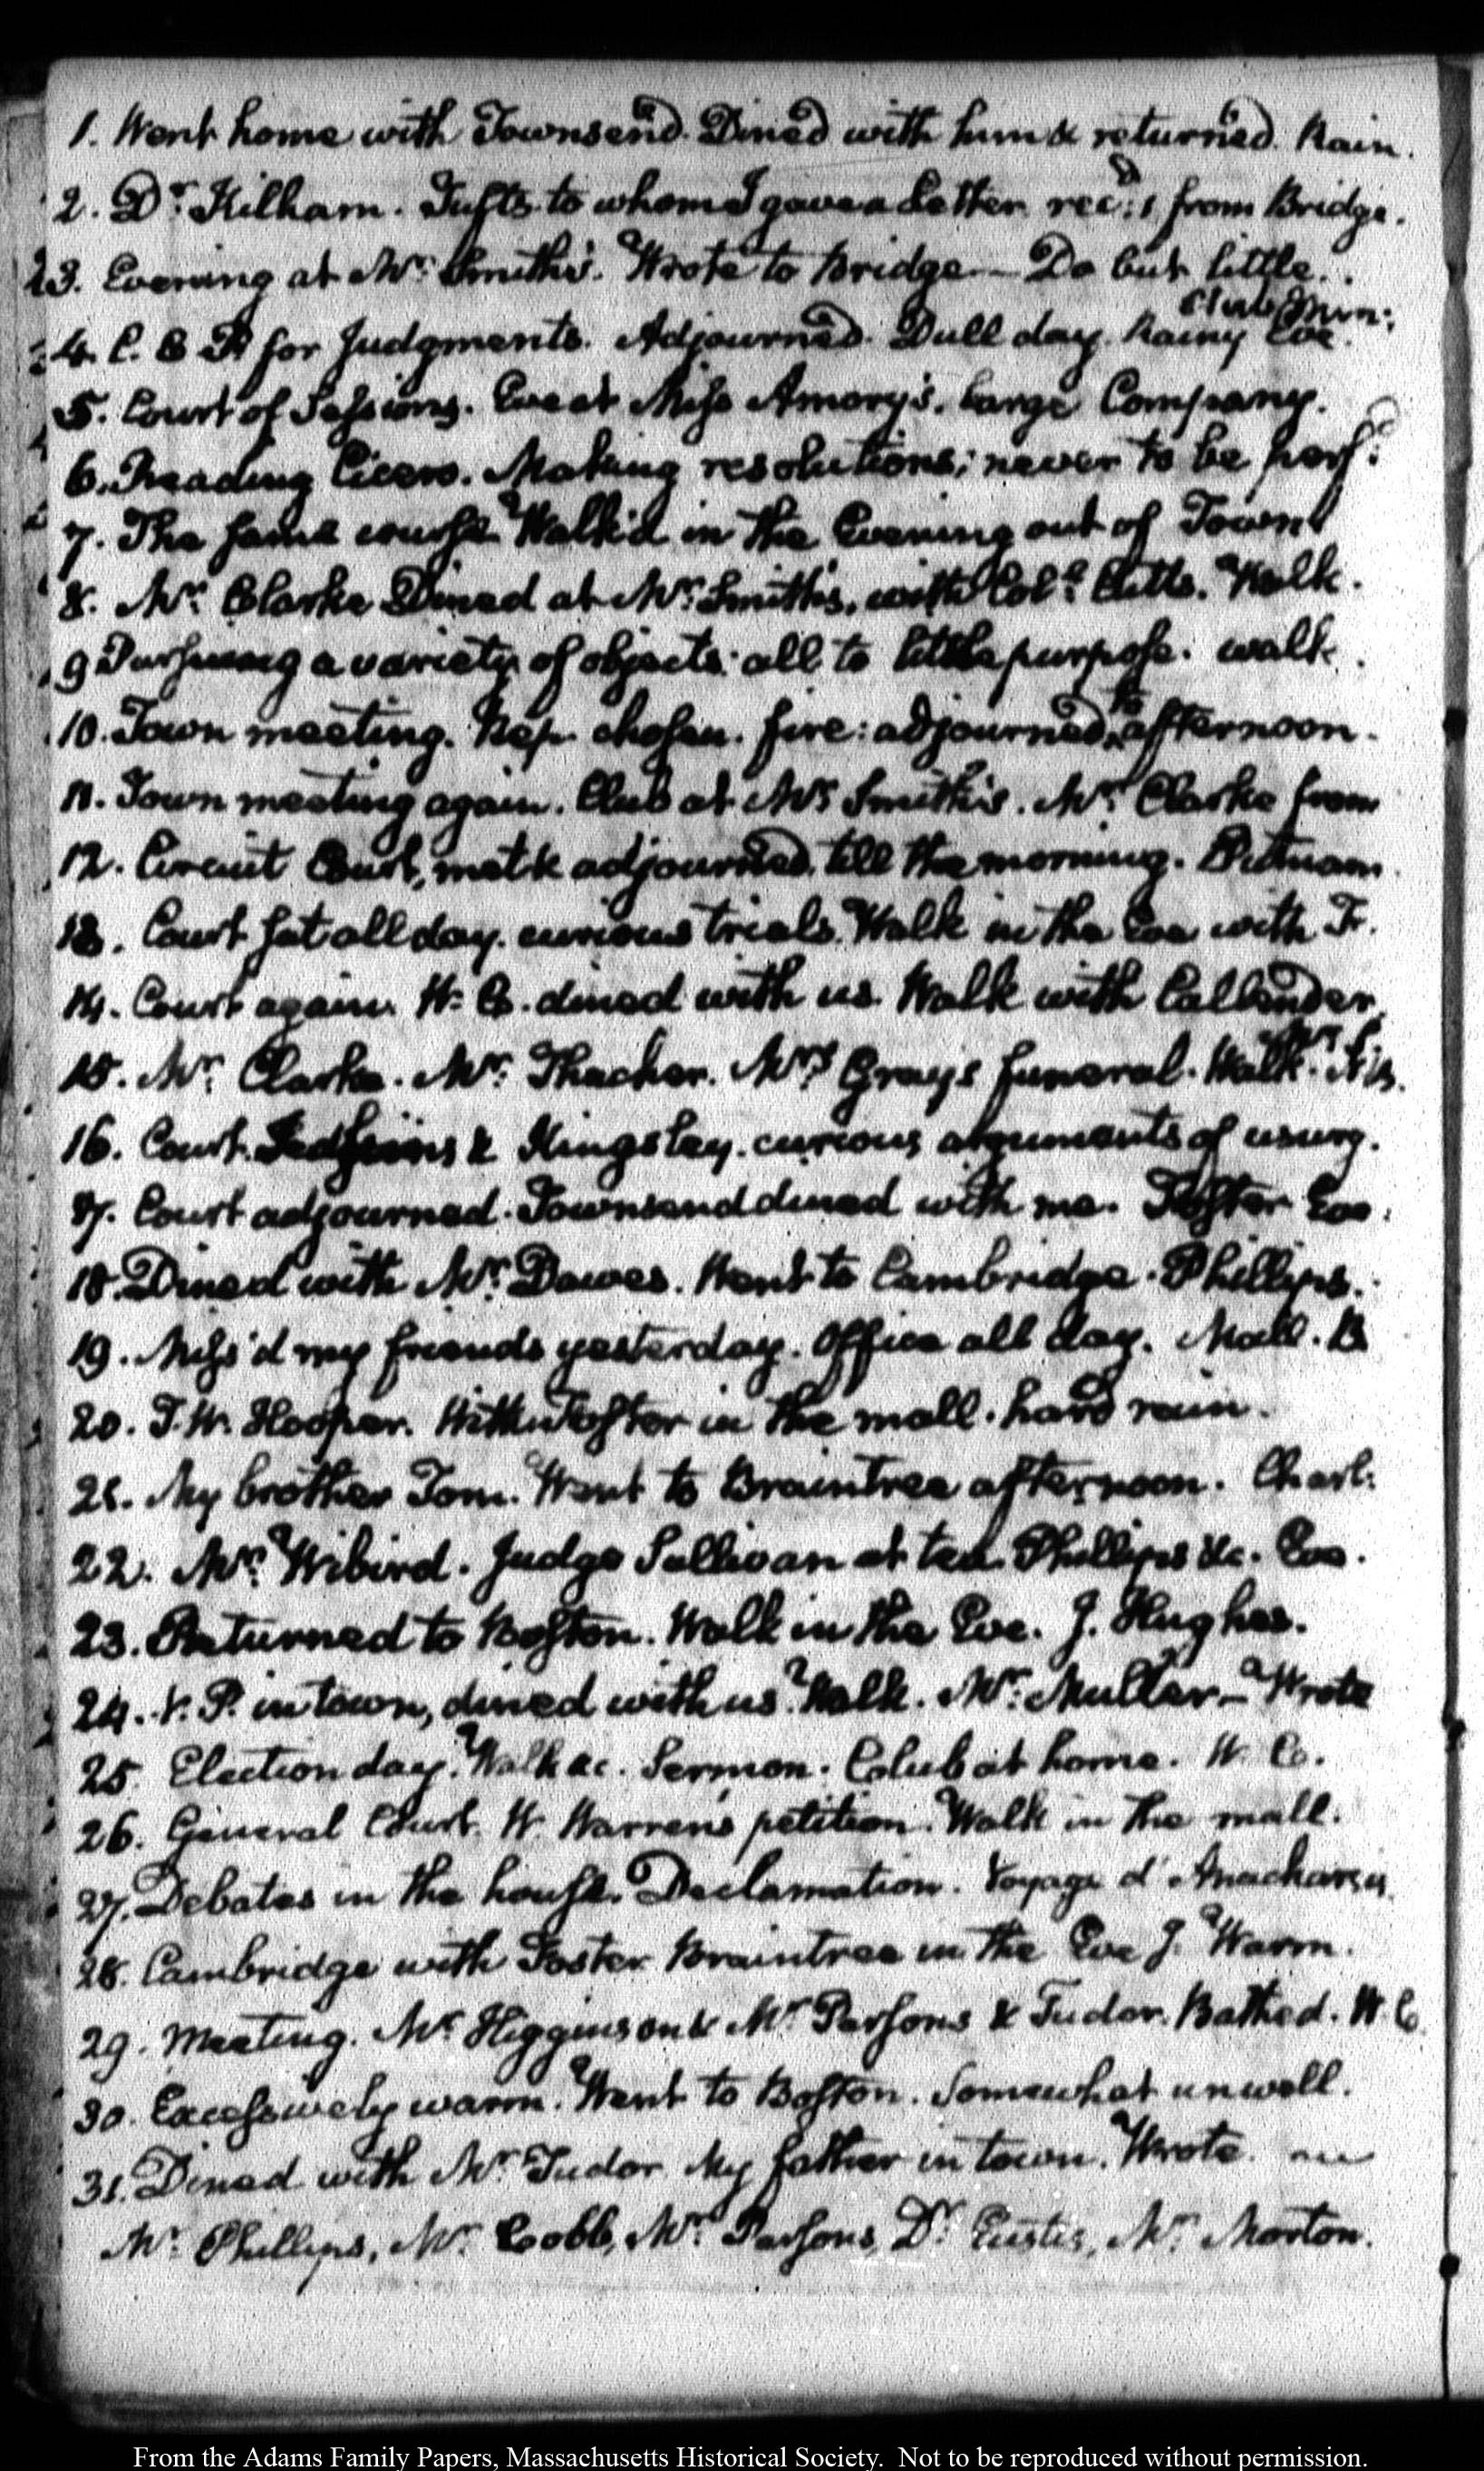 1. Went home with Townsend. Dined with him & returned. Rain.
2. Dr. Kilham. Tufts to whom I gave a Letter recd: from Bridge.
3. Evening at Mr. Smith's. Wrote to Bridge — Do but little.
Club
4. C. C. P. for Judgments. Adjourned. Dull day. Rainy Eve.
5. Court of Sessions. Eve at Miss Amory's. large Company.
6. Reading Cicero. Making resolutions; never to be perfd:
7. The same course. Walk'd in the Evening out of Town
8. Mr. Clarke Dined at Mr. Smith's, with Colo. Cutts. Walk.
9 Pursuing a variety of objects: all to little purpose. walk.
10. Town meeting. Rep. chosen. fire: adjourned to afternoon.
11. Town meeting again. Club at Mr. Smith's. Mr. Clarke from
12. Circuit Court, met & adjourned, till the morning. Putnam.
13. Court sat all day. curious trials. Walk in the Eve with Fr.
14. Court again. W. C. dined with us. Walk with Callender.
15. Mr. Clarke. Mr. Thacher. Mrs. Grays funeral. Walk.
16. Court. & Kingsley. curious arguments of usury.
17. Court adjourned. Townsend dined with me. Foster Eve.
18. Dined with Mr. Dawes. Went to Cambridge. Phillips.
19. Miss'd my friends yesterday. Office all day. Mall. B
20. T. W. Hooper. With Foster in the mall. hard rain.
21. My brother Tom. Went to Braintree afternoon. Charl:
22. Mr. Wibird. Judge Sullivan at tea. Phillips &c. Eve.
23. Returned to Boston. Walk in the Eve. J. Hughes.
24. V. P. in town, dined with us. Walk. Mr. Muller — Wrote
25. Election day. Walk &c. Sermon. Club at home. W. C.
26. General Court. W. Warren's petition. Walk in the mall.
27. Debates in the house. Declamation. Voyage d'Anacharsis.
28. Cambridge with Foster. Braintree in the Eve J. Warm.
29. Meeting. Mr. Higginson & Mr. Parsons & Tudor. Bathed. W. C.
30. Excessively warm. Went to Boston. Somewhat unwell.
31. Dined with Mr. Tudor. My father in town. Wrote.
Mr. Phillips, Mr. Cobb, Mr. Parsons, Dr. Eustis, Mr. Morton.
From the Adams Family Papers, Massachusetts Historical Society. Not to be reproduced without permission.